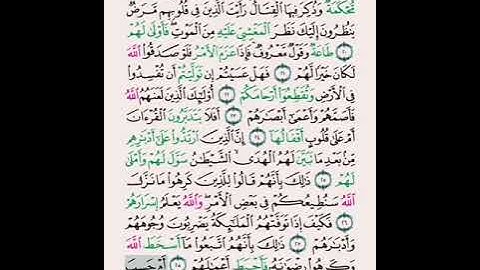 مُّحْكَمَةٌ وَذُكِرَ فِيهَا الْقِتَالُ رَأَيْتَ الَّذِينَ فِي قُلُوبِهِم مَّرَضٌ
يَنظُرُونَ إِلَيْكَ نَظَرَ الْمَغْشِيِّ عَلَيْهِ مِنَ الْمَوْتِ فَأَوْلَىٰ لَهُمْ
٢٠ طَاعَةٌ وَقَوْلٌ مَّعْرُوفٌ فَإِذَا عَزَمَ الْأَمْرُ فَلَوْ صَدَقُوا اللَّهَ
لَكَانَ خَيْرًا لَّهُمْ ٢١ فَهَلْ عَسَيْتُمْ إِن تَوَلَّيْتُمْ أَن تُفْسِدُوا
فِي الْأَرْضِ وَتُقَطِّعُوا أَرْحَامَكُمْ ٢٢ أُولَٰئِكَ الَّذِينَ لَعَنَهُمُ اللَّهُ
فَأَصَمَّهُمْ وَأَعْمَىٰ أَبْصَارَهُمْ ٢٣ أَفَلَا يَتَدَبَّرُونَ الْقُرْءَانَ
أَمْ عَلَىٰ قُلُوبٍ أَقْفَالُهَا ٢٤ إِنَّ الَّذِينَ ارْتَدُّوا عَلَىٰ أَدْبَارِهِم
مِّن بَعْدِ مَا تَبَيَّنَ لَهُمُ الْهُدَى الشَّيْطَانُ سَوَّلَ لَهُمْ وَأَمْلَىٰ
لَهُمْ ٢٥ ذَٰلِكَ بِأَنَّهُمْ قَالُوا لِلَّذِينَ كَرِهُوا مَا نَزَّلَ
اللَّهُ سَنُطِيعُكُمْ فِي بَعْضِ الْأَمْرِ وَاللَّهُ يَعْلَمُ إِسْرَارَهُمْ
٢٦ فَكَيْفَ إِذَا تَوَفَّتْهُمُ الْمَلَائِكَةُ يَضْرِبُونَ وُجُوهَهُمْ
وَأَدْبَارَهُمْ ٢٧ ذَٰلِكَ بِأَنَّهُمُ اتَّبَعُوا مَا أَسْخَطَ اللَّهَ
وَكَرِهُوا رِضْوَانَهُ فَأَحْبَطَ أَعْمَالَهُمْ ٢٨ أَمْ حَسِبَ